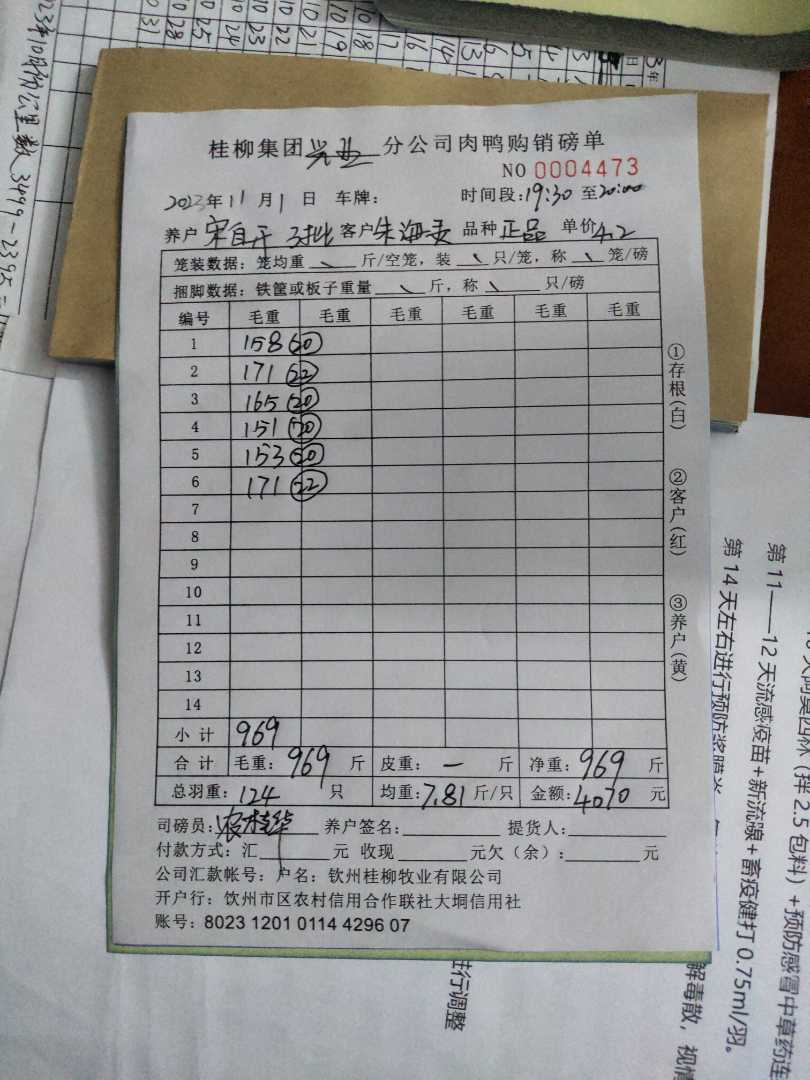 桂柳集团兴业分公司肉鸭购销磅单
NO 0004473
2023年11月1日 车牌: 时间段:19:30至20:00
养户 宋自开 3批 客户 朱海 品种 正品 单价4.2
笼装数据: 笼均重 斤/空笼, 装 只/笼, 称 笼/磅
捆脚数据: 铁筐或板子重量 斤, 称 只/磅
编号 毛重 毛重 毛重 毛重 毛重 毛重
1 158 20
2 171 22
3 165 20
4 151 20
5 153 20
6 171 22
7
8
9
10
11
12
13
14
小计 969
合计 毛重: 969 斤 皮重: 一 斤 净重: 969 斤
总羽重: 124 只 均重: 7.81 斤/只 金额: 4070 元
司磅员: 农桂华 养户签名: 提货人:
付款方式: 汇 元 收现 元欠(余): 元
公司汇款帐号: 户名: 钦州桂柳牧业有限公司
开户行: 饮州市区农村信用合作联社大垌信用社
账号: 8023 1201 0114 4296 07
①存根(白)
②客户(红)
③养户(黄)
23年10月份公里数 3499-2395=
第 11——12 天流感疫苗+新流腺+畜疫健打 0.75ml/羽。
第 14 天左右进行预防浆膜炎
(拌 2.5 包料)+预防感冒中草药连
解毒散，视情
进行调整